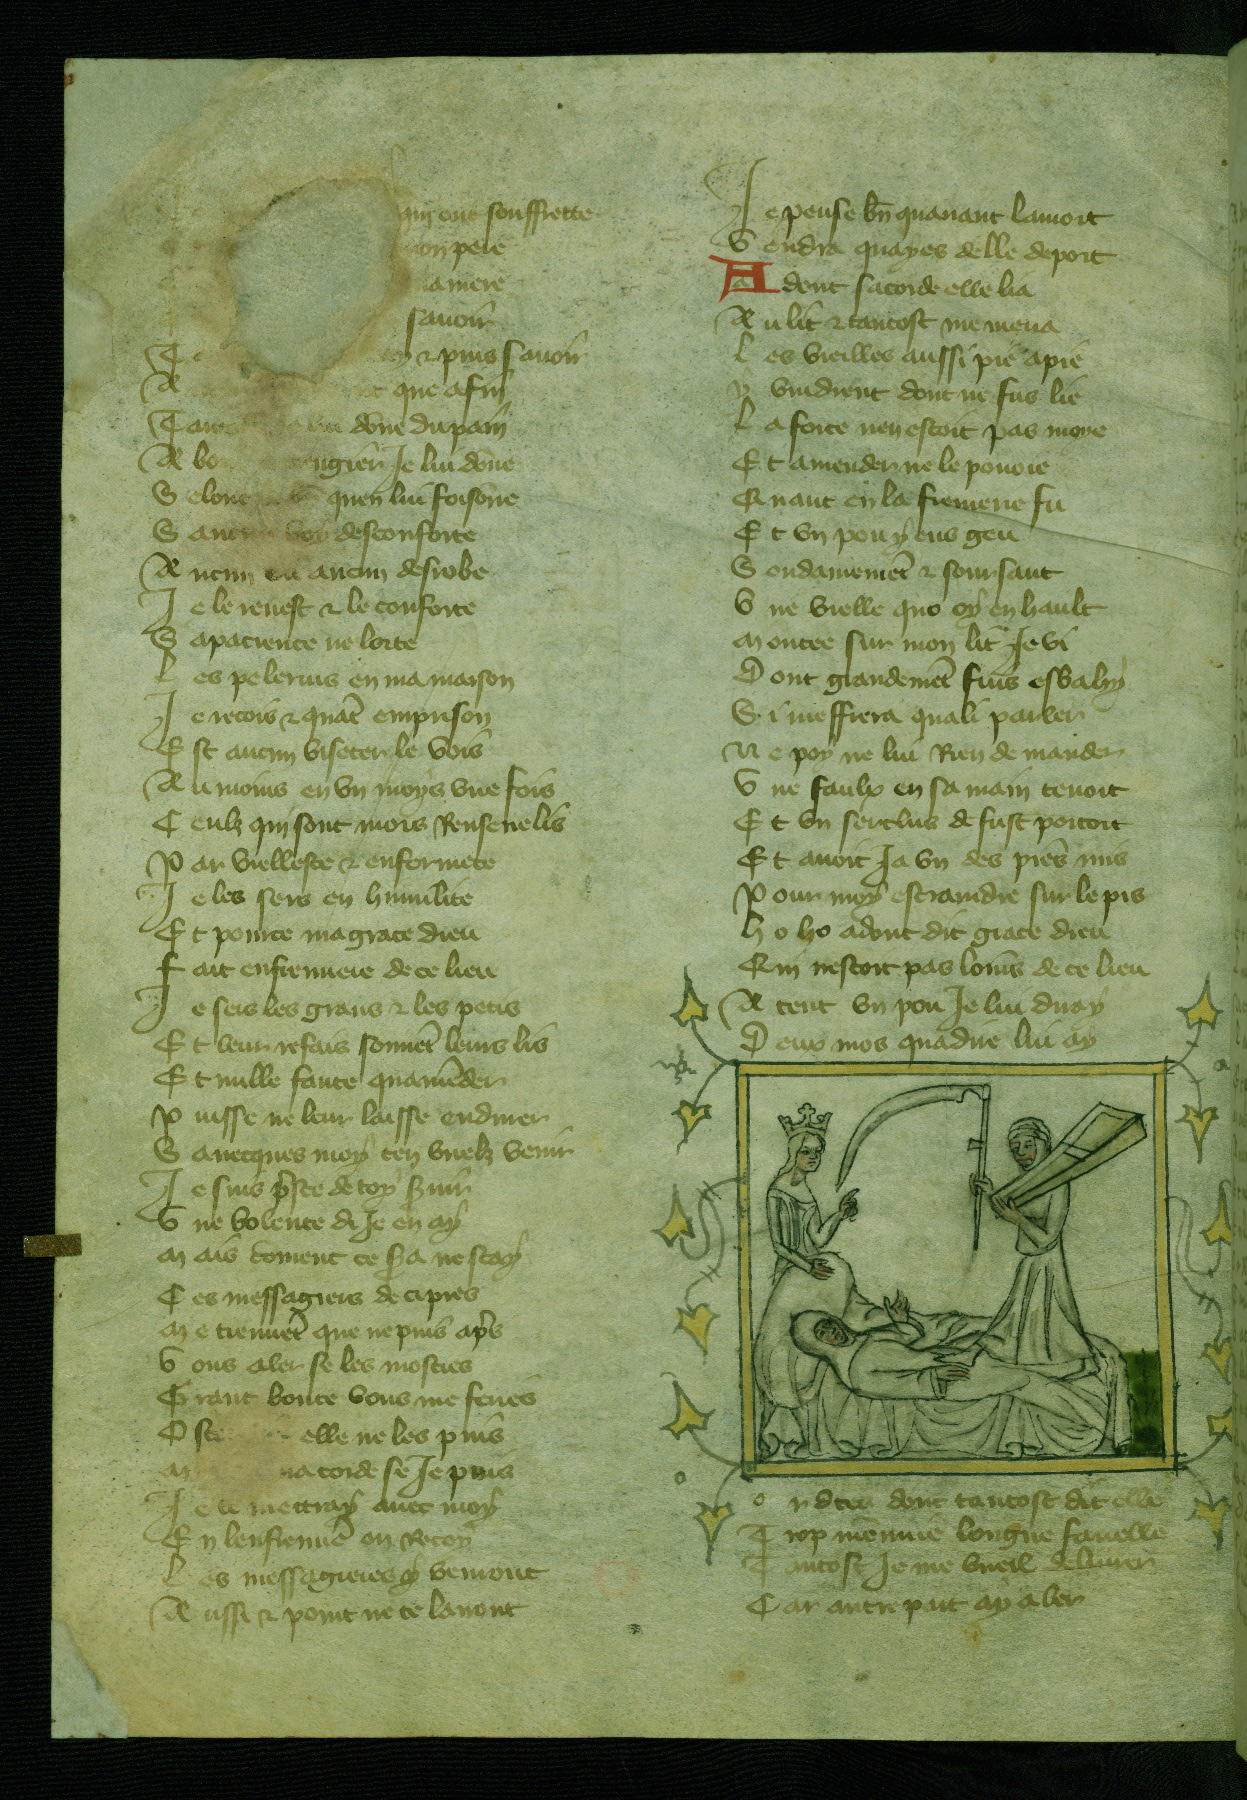 qui ont souffrette
mon pere
la mere
sauoir
& puis sauoir
que afin
dône du pain
Je lui dône
S elonc quen lui foisone
S anc desconforte
A ucun ou aucun desrobe
J e le reuest & le conforte
S a pacience ne lorte
L es pelerins en ma maison
J e recois & quāt emprison
E st aucun viseter le vois
A u moins en vn moys vne fois
C eulz qui sont mors Rensenelis
P ar viellesce & enfermete
J e les sers en humilite
E t pource ma grace dieu
F ait enfermiere de ce lieu
J e sers les grans & les petis
E t leur refais souuēt leurs lis
E t nulle faute quamēder
P uisse ne leur laisse endurer
S auecques moy ten vuelz venir
J e suis p̄ste de toy s̄uir
V ne volente di Je en ay
M ais cōment ce s̄a ne scay
C es messagiers de cipres
M e tiennēt que ne puis ap̄s
V ous aler se les mosties
G rant bonte vous me feries
O ste elle ne les puis
M acorde se Je puis
J e te mettray auec moy
E n lenfermīe on Recoy
L es messagieres y venront
A ussi & point ne te lairont
J e pense bn̄ quauant la mort
V endra quayes delle deport
A dont sacorde elle lia
A u lit & tantost me mena
L es vieilles aussi pie a pie
Y vindrent dont ne fus lie
L a force nen estoit pas moye
E t amender ne le pouoie
Q uant en la fremerie fu
E t vn pou y eus geu
S oudainemēt & soursaut
V ne vielle quo oy en hault
M ontee sur mon lit Je vi
D ont grandemēt fuis esbahy
S i meffrera quali parler
N e poy ne lui Rien demander
V ne faulx en sa main tenoit
E t vn serclus de fust portoit
E t auoit Ja vn des piēs mis
P our moy estraindre sur le pis
H o ho adont dit grace dieu
Q ui nestoit pas loins de ce lieu
A tent vn pou Je lui diray
D eux mos quadire lui ay
dont tantost dit elle
T rop mēnuie longue fauelle
T antost Je me vueil deliurer
C ar autre part ay aler